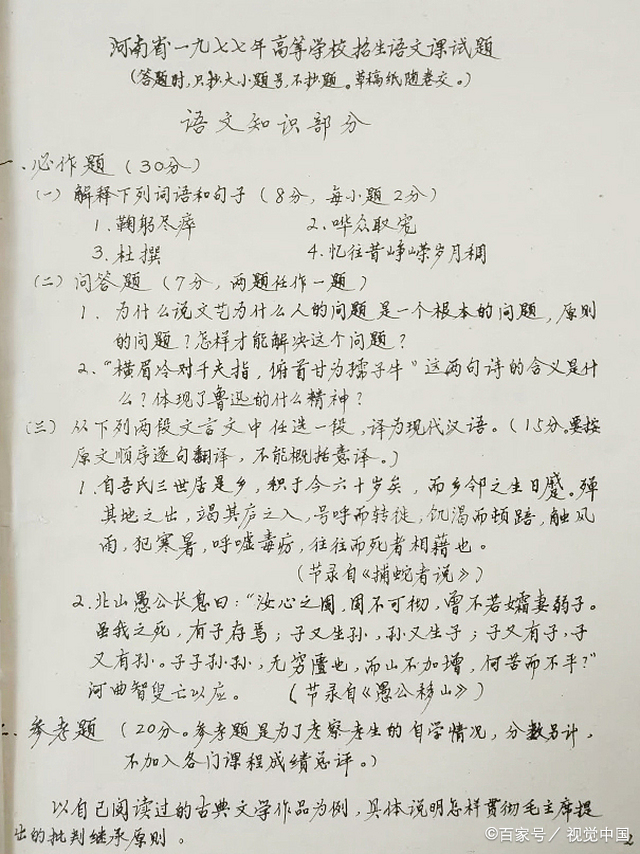 河南省一九七七年高等学校招生语文课试题
(答题时,只抄大小题号,不抄题。草稿纸随卷交。)
语文知识部分
一、必作题(30分)
(一)解释下列词语和句子(8分,每小题2分)
1.鞠躬尽瘁 2.哗众取宠
3.杜撰 4.忆往昔峥嵘岁月稠
(二)问答题(7分,两题任作一题)
1.为什么说文艺为什么人的问题是一个根本的问题,原则
的问题?怎样才能解决这个问题?
2.“横眉冷对千夫指,俯首甘为孺子牛”这两句诗的含义是什
么?体现了鲁迅的什么精神?
(三)从下列两段文言文中任选一段,译为现代汉语。(15分。要按
原文顺序逐句翻译,不能概括意译。)
1.自吾氏三世居是乡,积于今六十岁矣,而乡邻之生日蹙。殚
其地之出,竭其庐之入,号呼而转徙,饥渴而顿踣,触风
雨,犯寒暑,呼嘘毒疠,往往而死者相藉也。
(节录自《捕蛇者说》)
2.北山愚公长息曰:“汝心之固,固不可彻,曾不若孀妻弱子。
虽我之死,有子存焉;子又生孙,孙又生子;子又有子,子
又有孙。子子孙孙,无穷匮也,而山不加增,何苦而不平?”
河曲智叟亡以应。 (节录自《愚公移山》)
二、参考题(20分。参考题是为了考察考生的自学情况,分数另计,
不加入各门课程成绩总评。)
以自己阅读过的古典文学作品为例,具体说明怎样贯彻毛主席提
出的批判继承原则。
2
©百家号/视觉中国